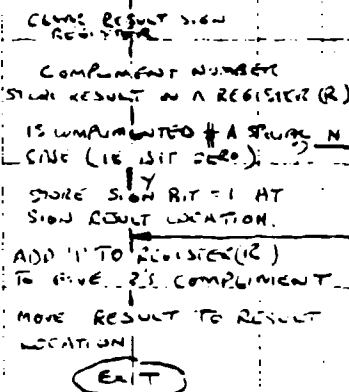 CLEAR RESULT SIGN
REGISTER
COMPLIMENT NUMBER
STORE RESULT IN A REGISTER (R)
IS COMPLIMENTED # A SPECIAL N
CASE (IE BIT ZERO) ?
Y
STORE SIGN BIT = 1 AT
SIGN RESULT LOCATION.
ADD '1' TO REGISTER (R)
TO GIVE 2'S COMPLIMENT
MOVE RESULT TO RESULT
LOCATION
EXIT